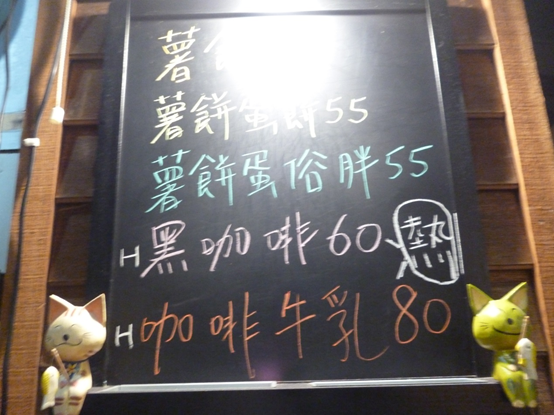 薯
薯餅蛋餅55
薯餅蛋俗胖55
H黑咖啡60 熱
H咖啡牛乳80